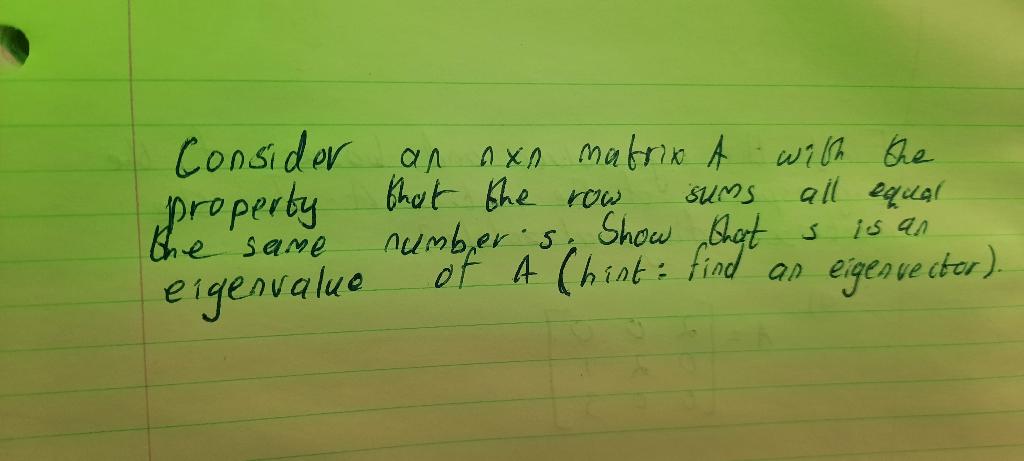 Consider an nxn matrix A with the
property that the row sums all equal
the same number s. Show that s is an
eigenvalue of A (hint: find an eigenvector).